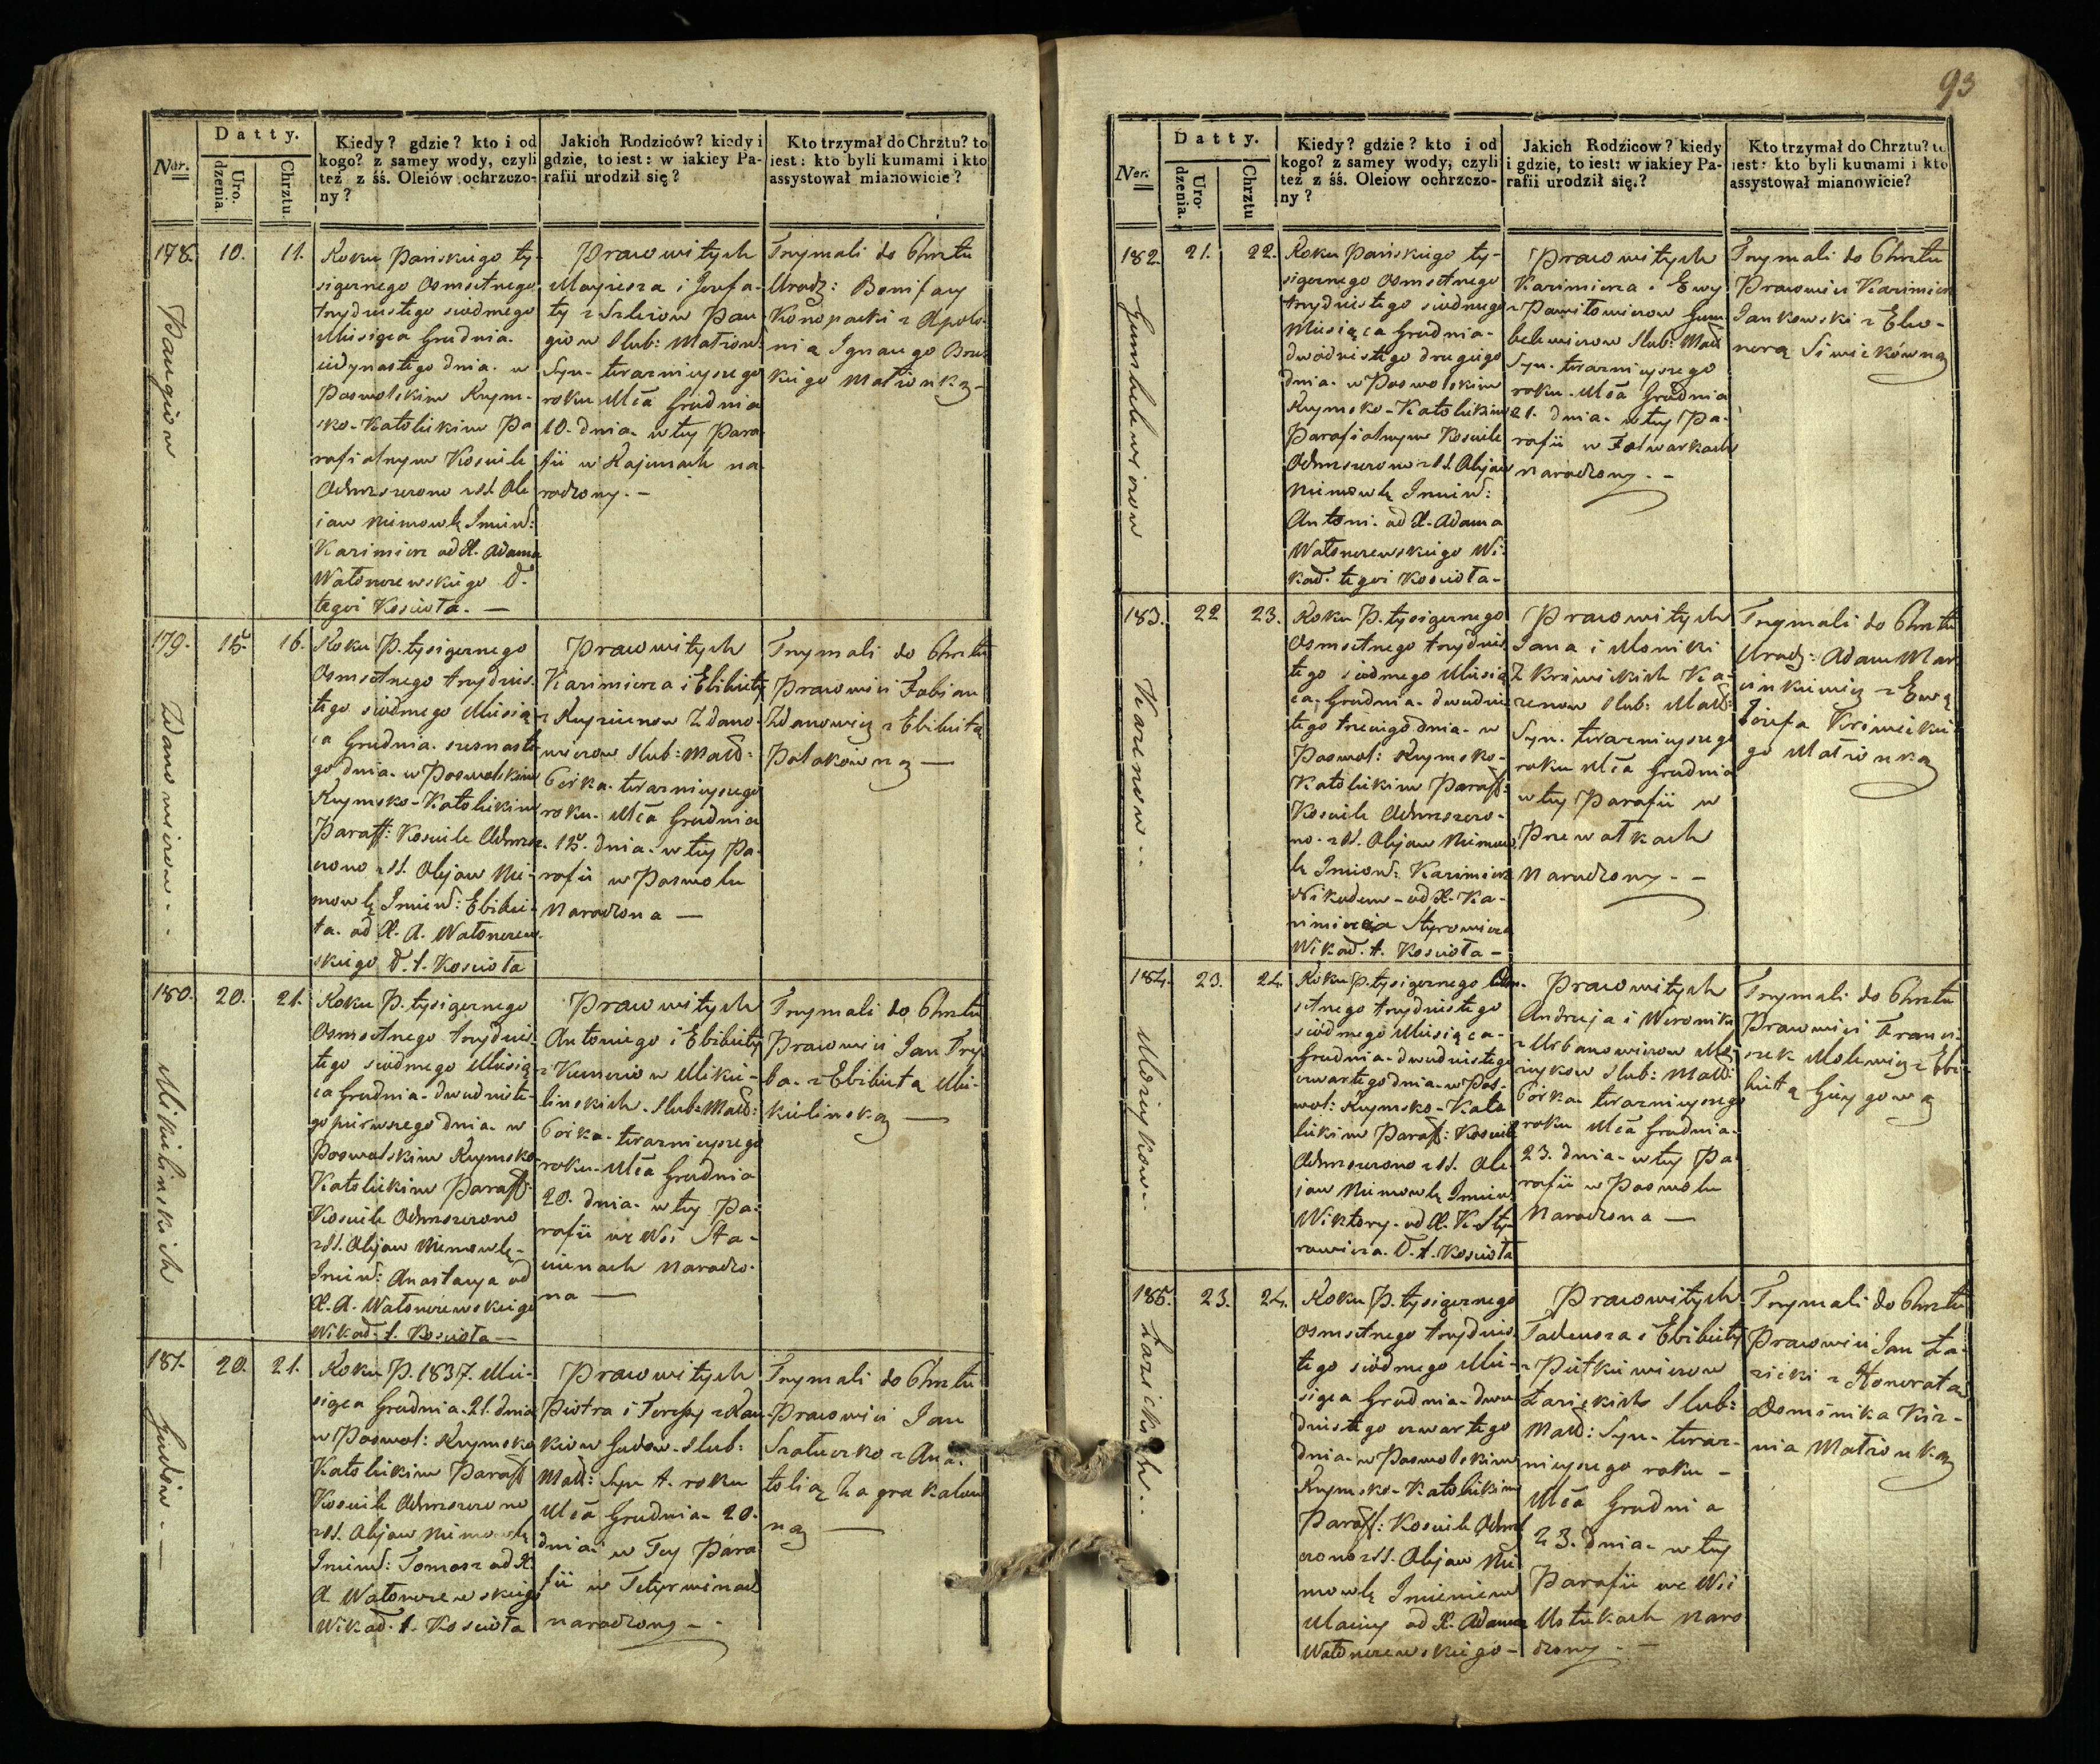 93
Datty.
Ner.
Uro.
dzenia.
Chrztu.
Kiedy? gdzie? kto i od
kogo? z samey wody, czyli
też z śś. Oleiów ochrzczo-
ny?
Jakich Rodziców? kiedy i
gdzie, to iest: w iakiey Pa-
rafii urodził się?
Kto trzymał do Chrztu? to
iest: kto byli kumami i kto
assystował mianowicie?
178. 10. 11.
Roku Pańskiego ty-
siącznego Osmsetnego
trzydziestego siódmego
Miesiąca Grudnia.
jedynastego dnia. w
Poswolskim Rzym-
sko-Katolickim Pa
rafialnym Kosciele
Ochrzszczono z SS. Ole
jow Niemowlę Imien:
Kazimierz od X. Adama
Wałonczewskiego
tegoż Kościoła. —
Prawowitych
Maujesza i Jozefa-
ty z Szleiow Pau
giow Slub: Małżon:
Syn. teraznieyszego
roku Mca Grudnia
10. dnia. w tey Para
fii w Rajunach na
rodzony. —
Trzymali do Chrztu
Urodz: Bonifacy
Konopacki z Apolo-
nią Ignacego
kiego Małżonką—
179. 15. 16.
Zdanowiczow. -
Roku P. tysiącznego
Osmsetnego trzydzies.
tego siódmego Miesią-
ca Grudnia. szesnaste-
go dnia. w Poswolskim
Rzymsko-Katolickim
Paraff: Kosciele Ochrzsz-
czono z SS. Olejow Nie-
mowlę Imien: Elżbie-
ta. od X. A. Wałonczew-
skiego t. Kościoła
Prawowitych
Kazimierza i Elżbiety
z Zdano-
wiczow Slub: Małż:
Córka. teraznieyszego
roku. Mca Grudnia
15. dnia. w tey Pa-
rafii w Poswolu
Narodzona —
Trzymali do Chrztu
Prawowici Fabian
Zdanowicz z Elżbietą
Polakowną —
180. 20. 21.
Mikulinskich
Roku P. tysiącznego
Osmsetnego trzydzies-
tego siódmego Miesią-
ca Grudnia. dwudzieste-
go pierwszego dnia. w
Poswolskim Rzymsko
Katolickim Paraff.
Kosciele Ochrzszczono
z SS. Olejow Niemowlę-
Imien: Anastazya od
X. A. Wałonczewskiego
Wikar. t. Kościoła —
Prawowitych
Antoniego i Elżbiety
z Miku-
linskich. Slub: Małż:
Córka. teraznieyszego
roku. Mca Grudnia
20. dnia. w tey Pa-
rafii we Wsi Sta-
cunach Narodzo-
na —
Trzymali do Chrztu
Prawowici Jan
z Elżbieta Mi-
kulinską —
181. 20. 21.
Gudow. - —
Roku P. 1837. Mie-
siąca Grudnia. 21. dnia
w Poswol: Rzymsko
Katolickim Paraff
Kosciele Ochrzszczono
z SS. Olejow Niemowlę
Imien: Tomasz od X
A Wałonczewskiego
Wikar. t. Kościoła
Prawowitych
Piotra i Teressy z Rau-
kiow Gudow. Slub:
Małż: Syn t. roku
Mca Grudnia. 20.
dnia w Tey Para
fii w Tetyrwinach
narodzony - -
Trzymali do Chrztu
Prawowici Jan
Szałuczko z Ana-
tolią Zagrakałow
ną —
Datty.
Ner.
Uro-
dzenia.
Chrztu
Kiedy? gdzie? kto i od
kogo? z samey wody, czyli
też z śś. Oleiow ochrzczo-
ny?
Jakich Rodzicow? kiedy
i gdzie, to iest: w iakiey Pa-
rafii urodził się.?
Kto trzymał do Chrztu? to
iest: kto byli kumami i kto
assystował mianowicie?
182. 21. 22.
Gumbelewiczow
Roku Pańskiego ty-
siącznego Osmsetnego
trzydziestego siódmego
Miesiąca Grudnia.
dwudziestego drugiego
dnia. w Poswolskim
Rzymsko-Katolickim
Parafialnym Kosciele
Ochrzszczono z SS. Olejow
Niemowlę Imien:
Antoni. od X. Adama
Wałonczewskiego Wi-
kar. tegoż Kościoła-
Prawowitych
Kazimierza i Ewy
z Pawiłowiczow Gum-
belewiczow Slub: Małż
Syn. teraznieyszego
roku. Mca Grudnia
21. dnia. w tey Pa-
rafii w Folwarkach
narodzony. -
Trzymali do Chrztu
Prawowici Kazimierz
Jankowski z Eleo-
norą
183. 22 23.
Karenow. .
Roku P. tysiącznego
Osmsetnego trzydzies-
tego siódmego Miesią-
ca. Grudnia. dwudzies-
tego trzeciego dnia. w
Poswol: Rzymsko-
Katolickim Paraff:
Kosciele Ochrzszczo-
no. z SS. Olejow Niemow-
lę Imion: Kazimierz
Nikodem - od X. Ka-
zimierza Styrowicza
Wikar. t. Kościoła -
Prawowitych
Jana i Moniki
Z Krzwickich Ka-
renow Slub: Małż:
Syn. teraznieyszego
roku Mca Grudnia
w tey Parafii w
Pnewałkach
Narodzony. -
Trzymali do Chrztu
Urodz: Adam Mar
cinkiewicz z Ewą
Józefa Krzwickie
go Małżonką
184. 23. 24.
Mozeykow. .
Roku P. tysiącznego Osm-
setnego trzydziestego
siódmego Miesiąca-
Grudnia. dwudziestego
czwartego dnia. w Pos-
wol: Rzymsko-Kato
lickim Paraff: Kosciele
Ochrzszczono z SS. Ole-
jow Niemowlę Imien
Wiktory. od X. K. Sty-
rowicza. t. Kościoła
Prawowitych
Andrzeja i Weroniki
z Urbanowiczow Mo-
zeykow Slub: Małż:
Córka teraznieyszego
roku Mca Grudnia.
23. dnia. w tey Pa-
rafii w Poswolu
Narodzona —
Trzymali do Chrztu
Prawowici Franci-
szek Molewicz z Elż-
bietą
185. 23. 24.
Łozickich. .
Roku P. tysiącznego
Osmsetnego trzydzies-
tego siódmego Mie-
siąca Grudnia. dwu-
dziestego czwartego
dnia. w Poswolskim
Rzymsko-Katolickim
Paraff: Kosciele Ochrzsz
czono z SS. Olejow Nie
mowlę Imieniem
Maciey od X. Adama
Wałonczewskiego -
Prawowitych
Tadeusza i Elżbiety
z Piutkiewiczow
Łozickich Slub:
Małż: Syn. teraz-
nieyszego roku -
Mca Grudnia
23. dnia. w tey
Parafii we Wsi
Ustukach Naro
dzony. —
Trzymali do Chrztu
Prawowici Jan Ła-
zicki z Honoratą
Dominika Kir-
nia Małżonką